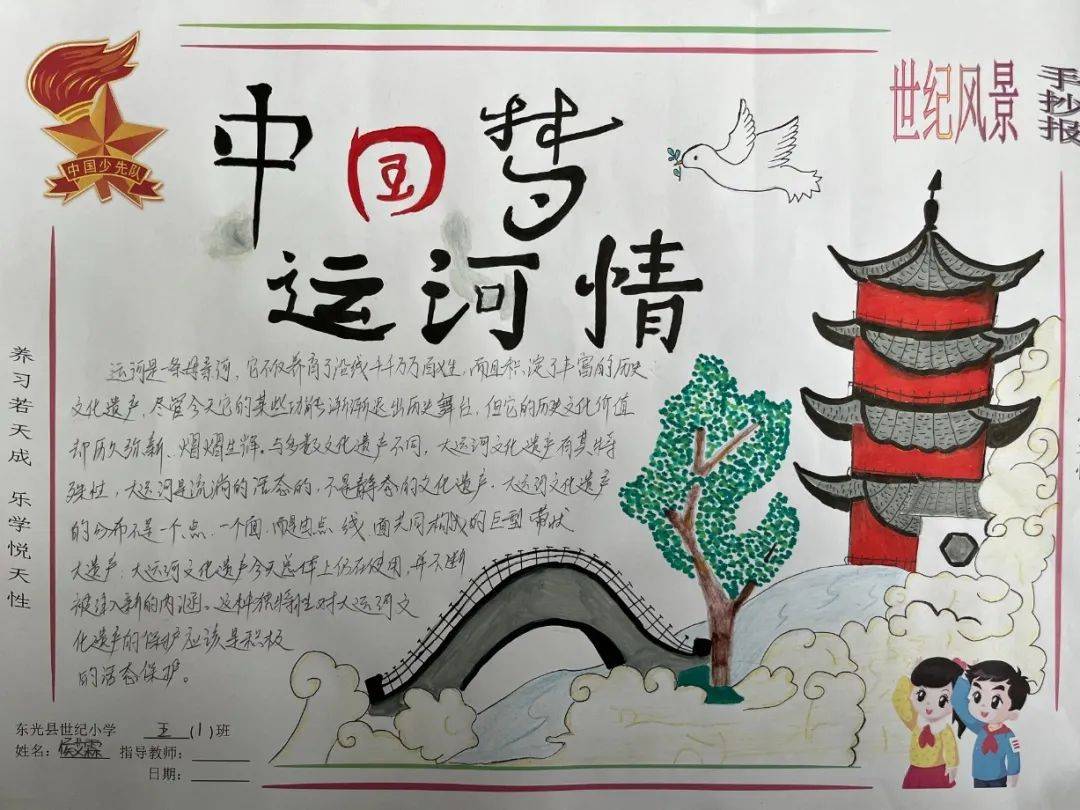 中国少先队
中国梦
运河情
世纪风景
手抄报
养习若天成 乐学悦天性
运河是一条母亲河,它不仅养育了沿线千千万万百姓,而且积淀了丰富的历史
文化遗产,尽管今天它的某些功能渐渐退出历史舞台,但它的历史文化价值
却历久弥新、熠熠生辉。与多数文化遗产不同,大运河文化遗产有其特
殊性,大运河是流淌的活态的,不是静态的文化遗产。大运河文化遗产
的分布不是一个点、一个面,而是由点、线、面共同构成的巨型带状
大遗产,大运河文化遗产今天总体上仍在使用,并不断
被注入新的内涵。这种独特性对大运河文
化遗产的保护应该是积极
的活态保护。
东光县世纪小学 五(1)班
姓名: 指导教师:
日期: